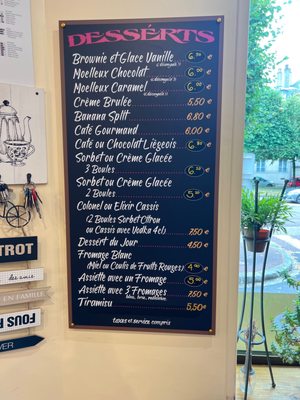 DESSÉRTS
Brownie et Glace Vanille 6,50 €
Moelleux Chocolat 6,00 €
Moelleux Caramel 6,00 €
Crème Brulée 5,50 €
Banana Split 6,80 €
Café Gourmand 6,00 €
Café ou Chocolat Liègeois 6,80 €
Sorbet ou Crème Glacée
3 Boules €
Sorbet ou Crème Glacée
2 Boules 5,00 €
Colonel ou Elixir Cassis
(2 Boules Sorbet Citron
ou Cassis avec Vodka 4cl) 7,50 €
Dessert du Jour 4,50 €
Fromage Blanc
(Miel ou Coulis de Fruits Rouges) 4,00 €
Assiette avec un Fromage 5,00 €
Assiette avec 3 Fromages 7,50 €
Tiramisu 5,50 €
taxes et service compris
TROT
les amis
EN FAMILLE
FOUS